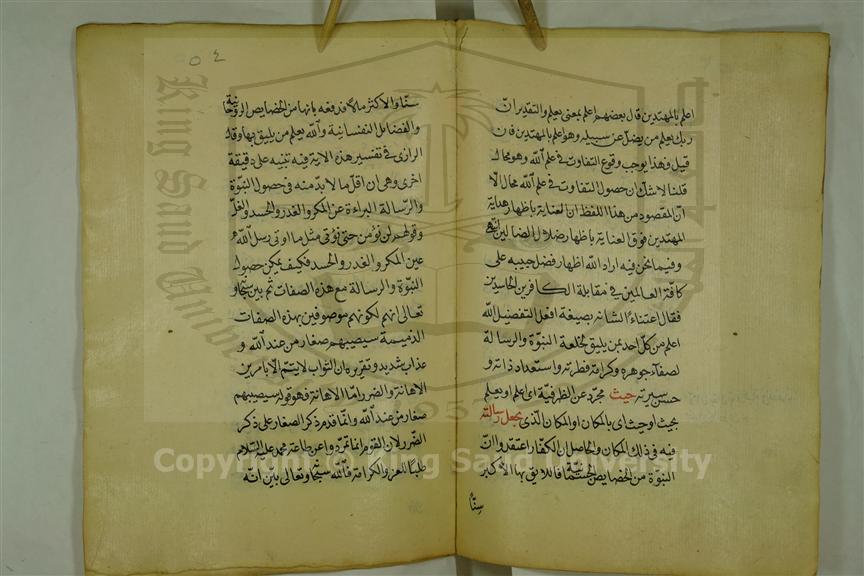 اعلم بالمهتدين قال بعضهم اعلم بمعنى يعلم والتقدير ان
ربك يعلم من يضل عن سبيله وهو اعلم بالمهتدين فان
قيل فهذا يوجب وقوع التفاوت في علم الله وهو محال
قلنا لا شك ان حصول التفاوت في علم الله محال الا
ان المقصود من هذا اللفظ ان العناية باظهار هداية
المهتدين فوق العناية باظهار ضلال الضالين انتهى
وفيما نحن فيه اراد الله اظهار فضل حبيبه على
كافة العالمين في مقابلة الكافرين الحاسدين
فقال اعتناءً لشانه بصيغة افعل التفضيل الله
اعلم من كل احد بمن يليق لخلعة النبوة والرسالة
لصفاء جوهره وكرامة فطرته واستعداد ذاته و
حسن سيرته حيث مجرد عن الظرفية اي اعلم ويعلم
بحيث او حيث اي بالمكان او المكان الذي يجعل رسالته
فيه في ذلك المكان والحاصل ان الكفار اعتقدوا ان
النبوة من الخصايص الجسمانية فاللايق بها الاكبر
سنًا
٥٤
سنًا والاكثر مالًا فدفعه بانها من الخصايص الروحانية
والفضايل النفسانية والله يعلم من يليق بها وقال
الرازي في تفسير هذه الاية فيه تنبيه على دقيقة
اخرى وهي ان اقل ما لا بد منه في حصول النبوة
والرسالة البراءة عن المكر والغدر والحسد والغل
وقولهم لن نؤمن حتى نؤتى مثل ما اوتي رسل الله
عين المكر والغدر والحسد فكيف يمكن حصول
النبوة والرسالة مع هذه الصفات ثم بين سبحانه و
تعالى انهم لكونهم موصوفين بهذه الصفات
الذميمة سيصيبهم صغار من عند الله و
عذاب شديد وتقريره ان الثواب لا يتم الا بامرين
الاهانة والضرر اما الاهانة فهو قوله سيصيبهم
صغار من عند الله وانما قدم ذكر الصغار على ذكر
الضرر لان القوم انما تمردوا عن طاعة محمد عليه السلام
طلبًا للعز والكرامة فالله سبحانه وتعالى بين انه
King Saud University
1957
Copyright © King Saud University